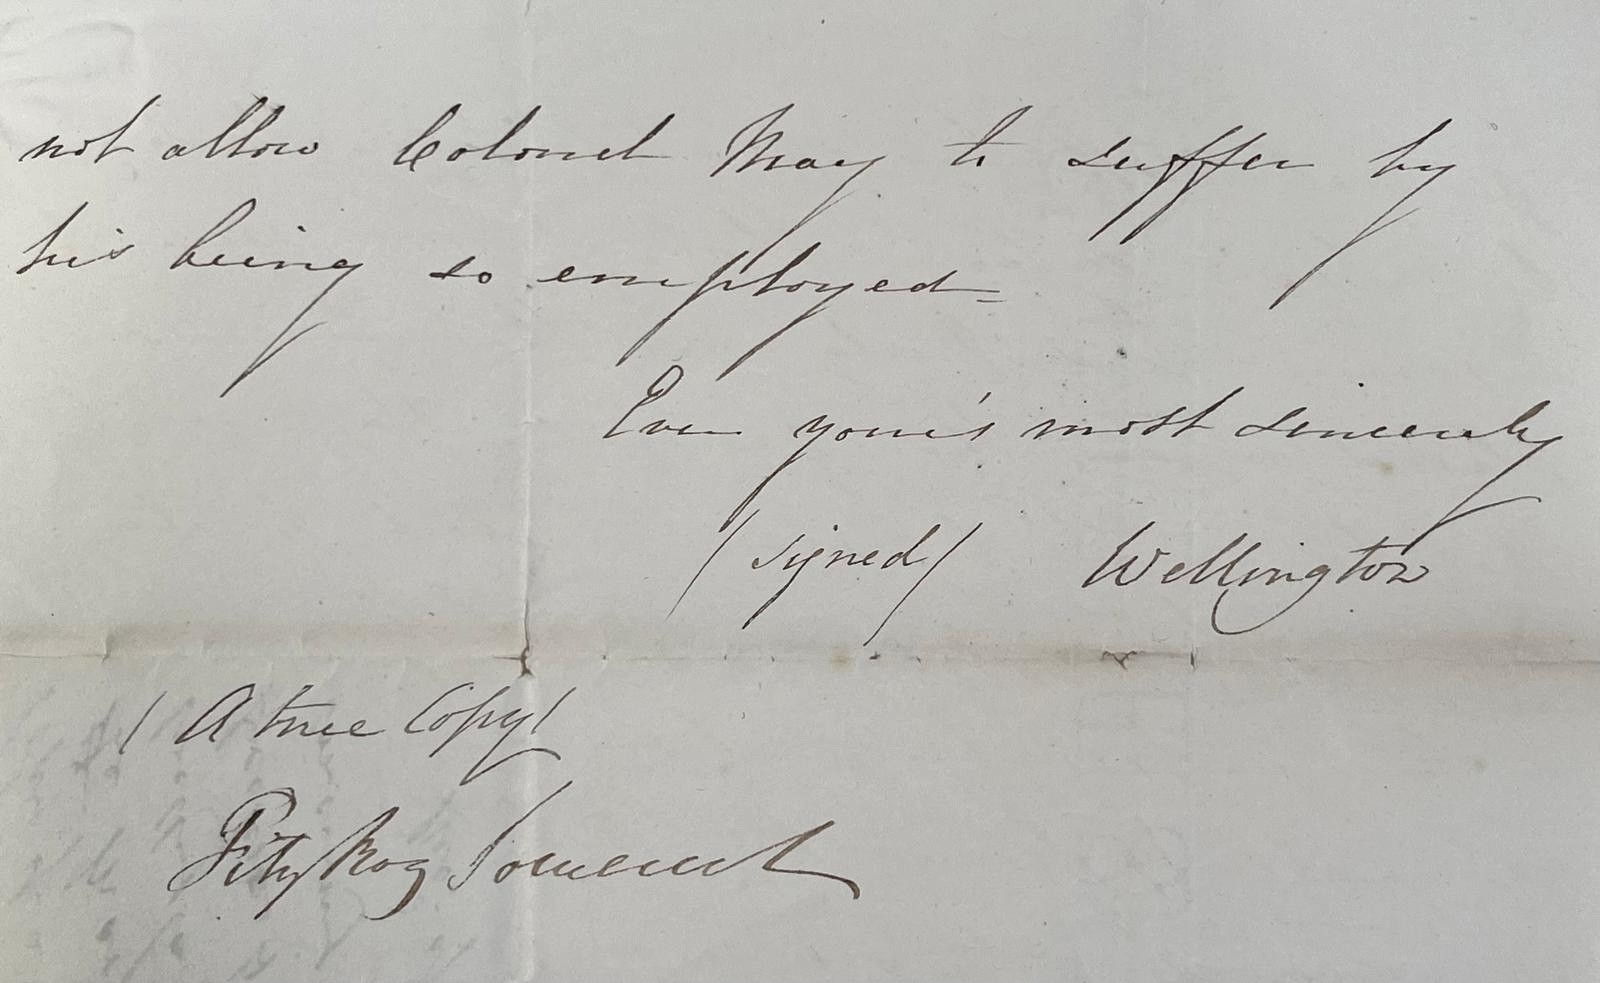 not allow Colonel May to suffer by
his being so employed=
Ever your's most sincerely
(signed) Wellington
(A true Copy)
FitzRoy Somerset